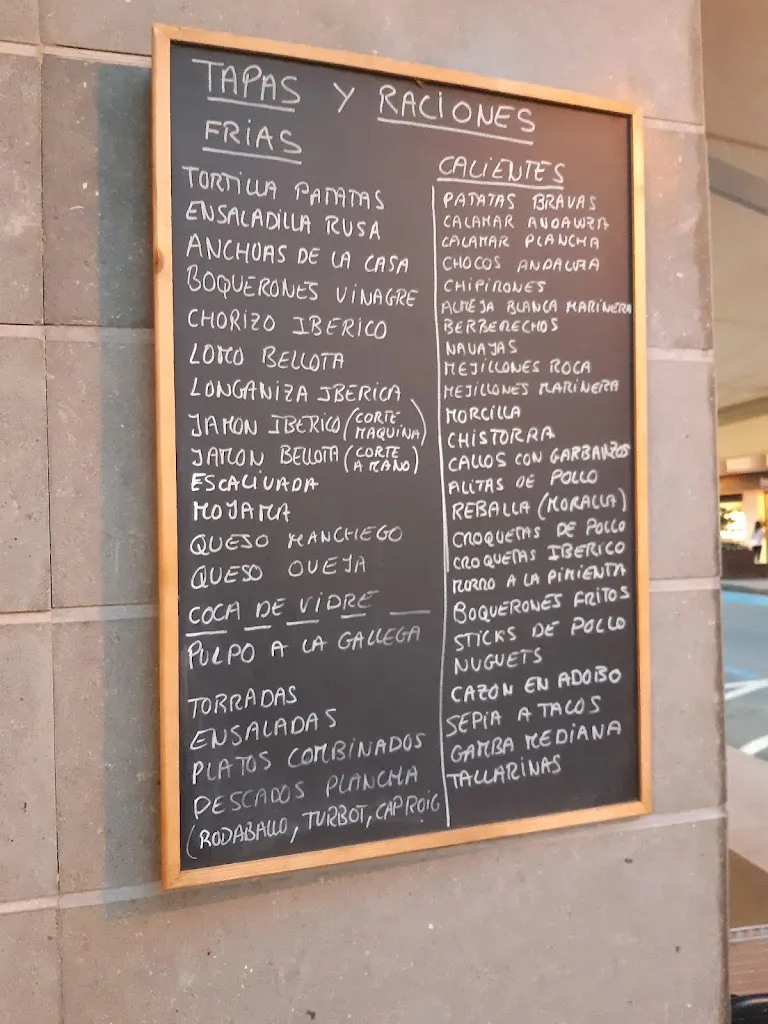 TAPAS Y RACIONES
FRIAS
TORTILLA PATATAS
ENSALADILLA RUSA
ANCHOAS DE LA CASA
BOQUERONES VINAGRE
CHORIZO IBERICO
LOMO BELLOTA
LONGANIZA IBERICA
JAMON IBERICO (CORTE MAQUINA)
JAMON BELLOTA (CORTE A MANO)
ESCALIVADA
MOJAMA
QUESO MANCHEGO
QUESO OVEJA
COCA DE VIDRE
PULPO A LA GALLEGA
TORRADAS
ENSALADAS
PLATOS COMBINADOS
PESCADOS PLANCHA
(RODABALLO, TURBOT, CAP ROIG
CALIENTES
PATATAS BRAVAS
CALAMAR ANDALUZA
CALAMAR PLANCHA
CHOCOS ANDALUZA
CHIPIRONES
ALMEJA BLANCA MARINERA
BERBERECHOS
NAVAJAS
MEJILLONES ROCA
MEJILLONES MARINERA
MORCILLA
CHISTORRA
CALLOS CON GARBANZOS
ALITAS DE POLLO
REBALLA (MORALLA)
CROQUETAS DE POLLO
CROQUETAS IBERICO
MORRO A LA PIMIENTA
BOQUERONES FRITOS
STICKS DE POLLO
NUGUETS
CAZON EN ADOBO
SEPIA A TACOS
GAMBA MEDIANA
TALLARINAS